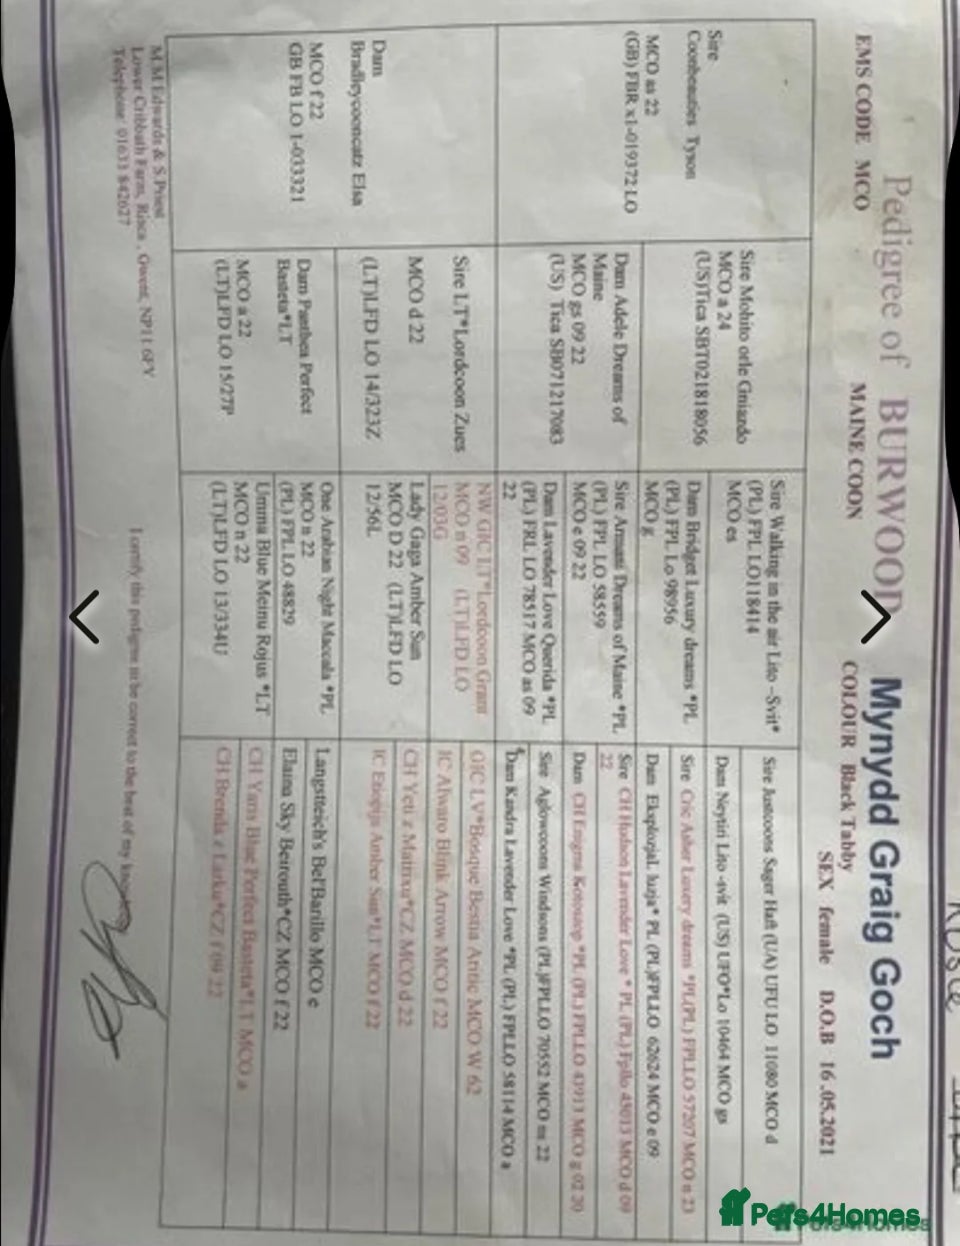 Pedigree of BURWOOD Mynydd Graig Goch
EMS CODE MCO MAINE COON COLOUR Black Tabby
SEX female D.O.B 16.05.2021
Sire
Coonbeauties Tyson
MCO as 22
(GB) FBR x1-019372 LO
Dam
Bradleycooncatz Elsa
MCO f 22
GB FB LO 1-033321
Sire Mohito orle Gniazdo
MCO a 24
(US)Tica SBT021818056
Dam Adele Dreams of
Maine
MCO gs 09 22
(US) Tica SB071217083
Sire LT*Lordcoon Zues
MCO d 22
(LT)LFD LO 14/323Z
Dam Panthea Perfect
Basteta*LT
MCO a 22
(LT)LFD LO 15/27P
Sire Walking in the air Lito -Svit*
(PL) FPL LO118414
MCO es
Dam Bridget Luxury dreams *PL
(PL) FPL Lo 98956
MCO g
Sire Amani Dreams of Maine *PL
(PL) FPL LO 58559
MCO e 09 22
Dam Lavender Love Querida *PL
(PL) FRL LO 78517 MCO as 09
22
NW GIC LT*Lordcoon Grant
MCO n 09 (LT)LFD LO
12/03G
Lady Gaga Amber Sun
MCO D 22 (LT)LFD LO
12/56L
One Arabian Night Maccala *PL
MCO n 22
(PL) FPL LO 48829
Umma Blue Meinu Rojus *LT
MCO n 22
(LT)LFD LO 13/334U
Sire Justcoons Sager Haft (UA) UFU LO 11080 MCO d
Dam Neytiri Lito -svit (US) UFO*Lo 10464 MCO gs
Sire Cric Asher Luxery dreams *PL(PL) FPLLO 57207 MCO n 23
Dam Eksplozjal. luzja* PL (PL)FPLLO 62624 MCO e 09
Sire CH Hudson Lavender Love * PL (PL) Fpllo 45013 MCO d 09
22
Dam CH Enigma Kotostop *PL (PL) FPLLO 43913 MCO g 02 20
Sire Aglowcoons Windsons (PL)FPLLO 70552 MCO ns 22
Dam Kandra Lavender Love *PL (PL) FPLLO 58114 MCO a
GIC LV*Bosque Bestia Artic MCO W 62
IC Alwaro Blink Arrow MCO f 22
CH Yeti z Matrixu*CZ MCO d 22
IC Etiopija Amber Sun*LT MCO f 22
Langstteich's Bel'Barillo MCO e
Elaina Sky Beirouth*CZ MCO f 22
CH Yaris Blue Perfect Basteta*LT MCO a
CH Brenda z Larku*CZ f 09 22
M.M Edwards & S Priest
Lower Cribbath Farm, Risca , Gwent, NP11 6FY
Telephone 01633 842627
I certify this pedigree to be correct to the best of my
Pets4Homes
Pets4Homes